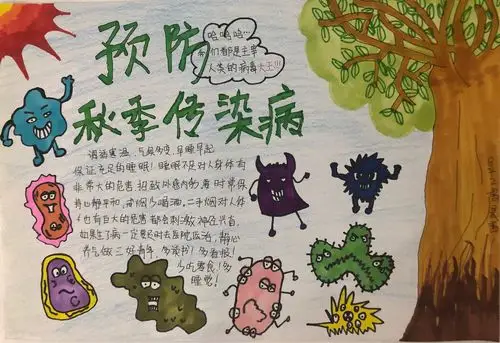 预防
们都是主宰
人类的病毒大王!!!
秋季传染病
调适寒温、气候多变,早睡早起
保证充足的睡眠!睡眠不足对人身体有
非常大的危害 招致外感 时常保
持心静平和,戒烟少喝酒,二手烟对人体
也有巨大的危害 都会刺激神经兴奋,
如果生了病一定要及时去医院医治,静心
养气做三好青年,多读书!多看报!
少吃零食!多
睡觉!